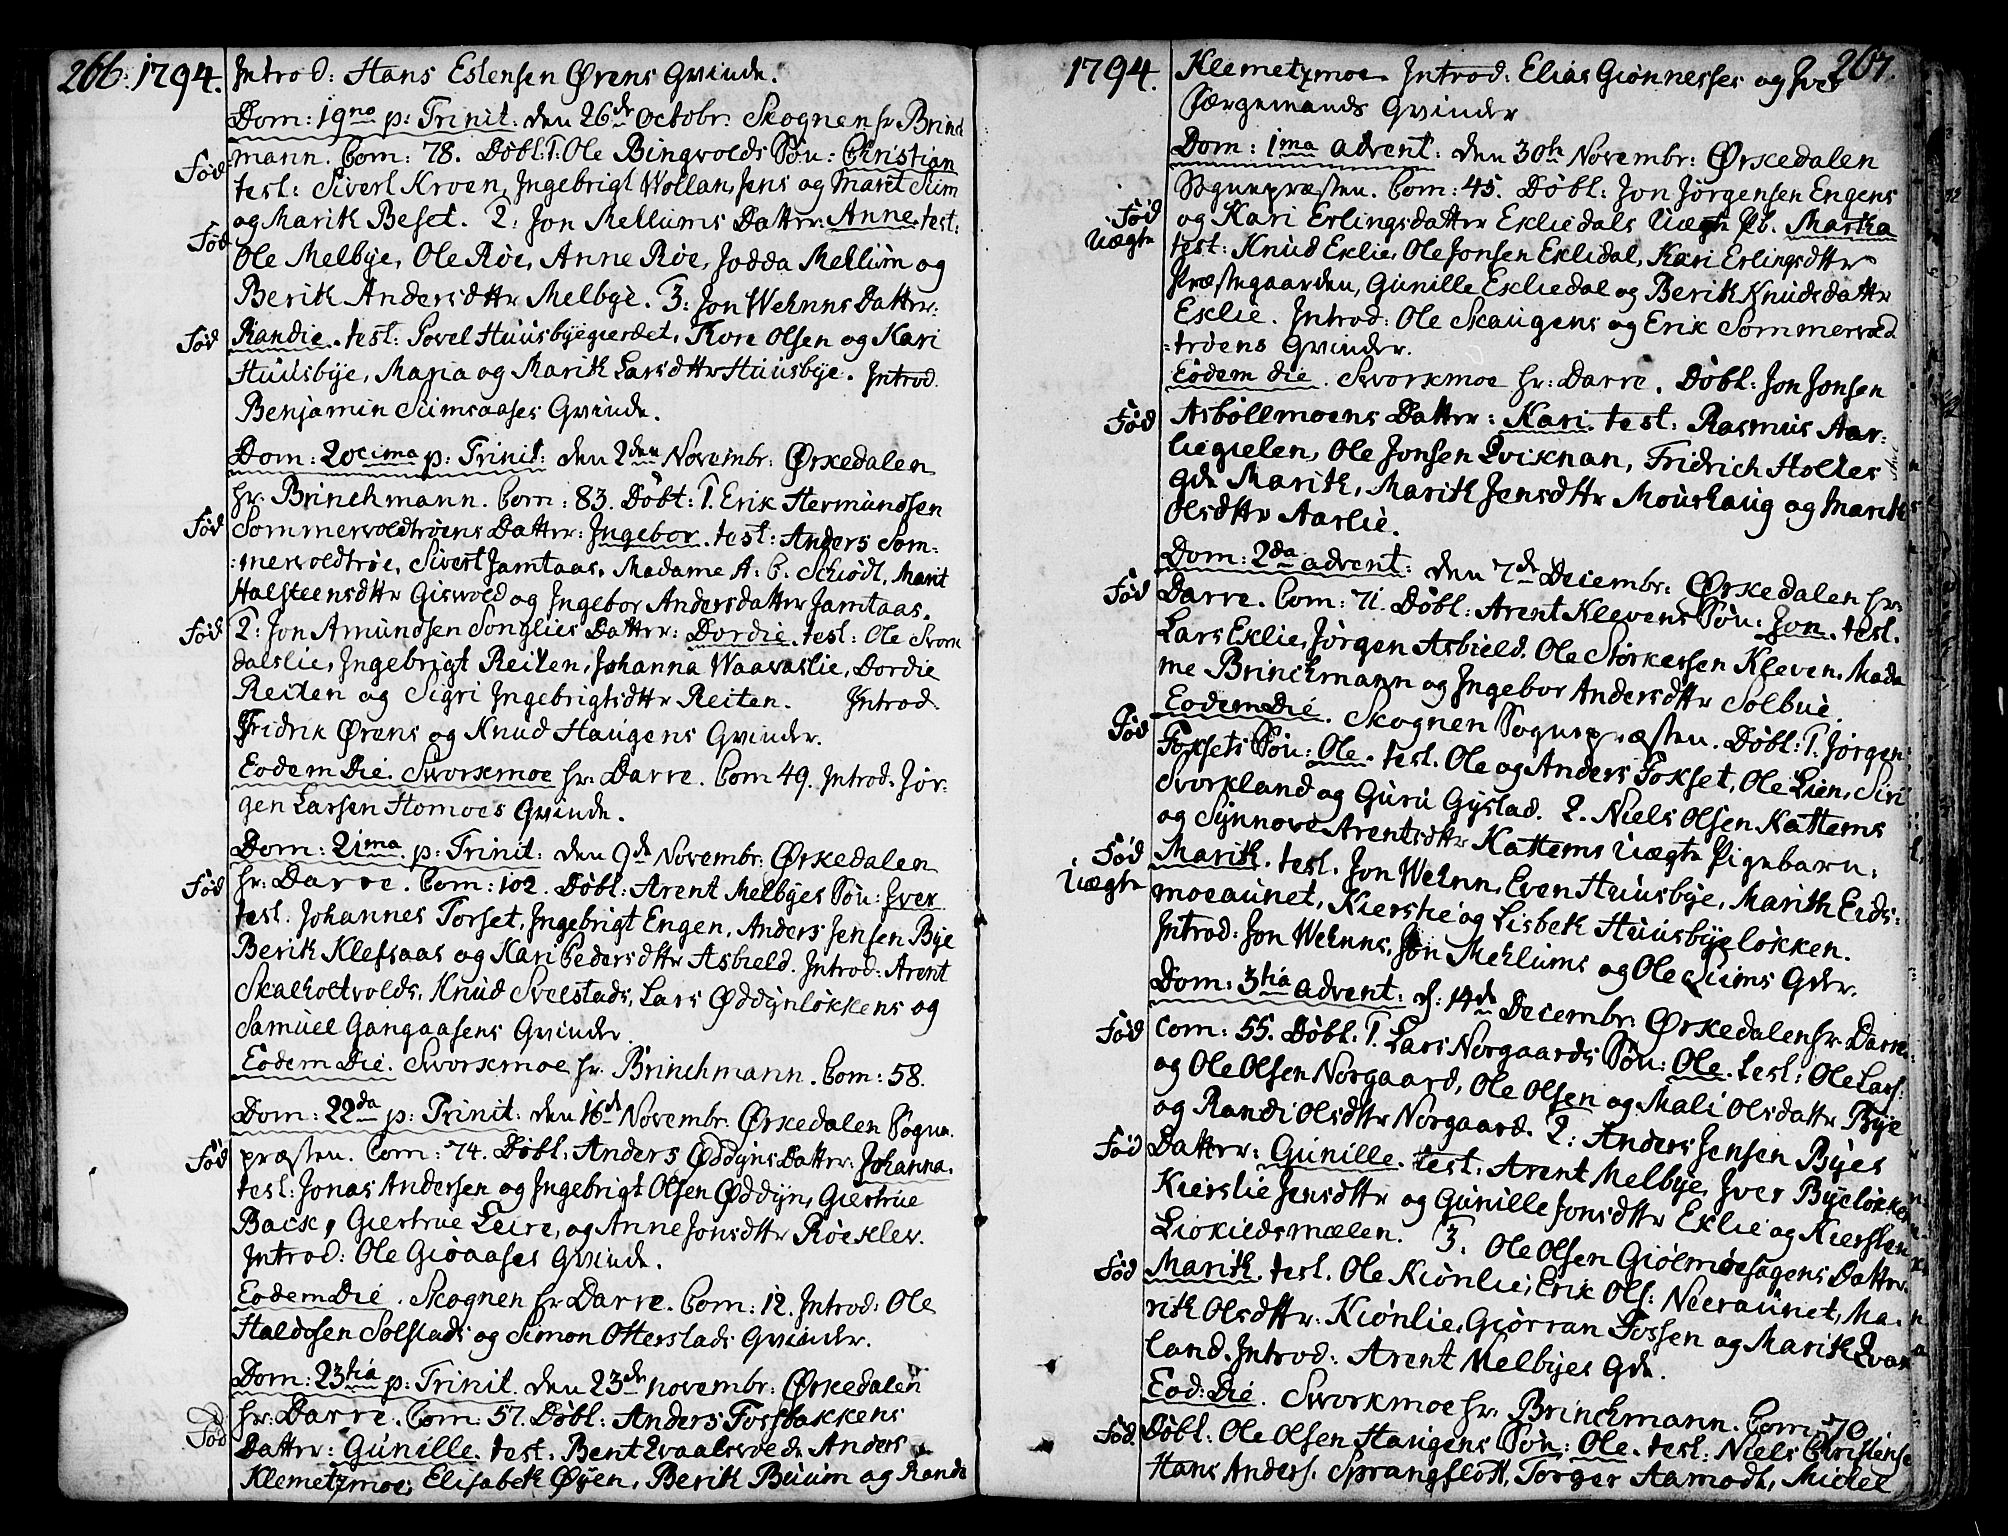 266. 1794. Introd: Hans Estensen Ørens Qvinde.
Dom: 19no p: Trinit: den 26de Octobr: Skognen hr Brinck
mann. Com: 78. Døbt: 1. Ole Bingvolds Søn: Christian
Fød
test: Sivert Kroen, Ingebrigt Wollan, Jens og Marit Sum
og Marith Beset. 2: Jon Mellums Datter: Anne. test:
Fød
Ole Melbye, Ole Røe, Anne Røe, Jodda Mellum og
Berith Andersdttr Melbye. 3: Jon Wehnns Datter:
Fød Randie. test: Povel Huusbyegierdet, Thore Olsen og Kari
Huusbye, Maria og Marith Larsdttr Huusbye. Introd.
Benjamin Sumsaases Qvinde.
Dom: 20cima p: Trinit: den 2den Novembr: Ørkedalen
hr: Brinchmann. Com: 83. Døbt: 1. Erik Hermundsen
Fød Sommervoldtrøens Datter: Ingebor. test: Anders Som:
mervoldtrøe, Sivert Jamtaas, Madame A: C. Schiødt, Marit
Halsteensdttr Giswold og Ingebor Andersdatter Jamtaas.
Fød 2: Jon Amundsen Songlies Datter: Dordie. test: Ole Svor
dalslie, Ingebrigt Reiten, Johanna Waavaslie, Dordie
Reiten og Sigri Ingebrigtsdttr Reiten. Introd.
Fridrik Ørens og Knud Haugens Qvinder.
Eodem Die. Svorkmoe hr: Darre. Com 49. Introd. Jør-
gen Larsen Homoes Qvinde.
Dom: 21ma p: Trinit: den 9de Novembr: Ørkedalen
Fød hr: Darre. Com: 102. Døbt: Arent Melbyes Søn: Iver
test. Johannes Forset, Ingebrigt Engen, Anders Jensen Bye
Berith Klefsaas og Kari Pedersdttr Asbield. Introd: Arent
Skalholtvolds, Knud Svelstads, Lars Øddynløkkens og
Samuel Gangaasens Qvinder.
Eodem Die. Svorkmoe hr. Brinchmann. Com: 58.
Dom: 22da p: Trinit: den 16de Novembr: Ørkedalen Sogne
Fød præsten. Com: 74. Døbt: Anders Øddyns Datter: Johanna.
test: Jonas Andersen og Ingebrigt Olsen Øddyn, Giertrue
Back, Giertrue Leire, og Anne Jonsdttr Røeklev.
Introd: Ole Giøaases Qvinde.
Eodem Die. Skognen hr Darre. Com: 12. Introd: Ole
Haldosen Solstads og Simon Otterstads Qvinder.
Dom: 23tia p: Trinit. den 23de novembr: Ørkedalen
hr: Darre. Com: 57. Døbt: Anders Fossbakkens
Fød
Datter: Gunille. test: Bent Evaalsvolde Anders
Klemetzmoe, Elisabeth Øyen, Berith Buum og Rande
1794. Klemetzmoe Introd: Elias Giønnesses og Iver 267.
Færgemands Qvinder
Dom: 1ma advent: den 30te Novembr: Ørkedalen
Sognepræsten. Com: 45. Døbt: Jon Jørgensen Engens
Fød og Kari Erlingsdatter Ekliedals Uægte Pb. Martha
Uægte test: Knud Eklie, Ole Jonsen Eklidal, Kari Erlingsdttr
Præstegaarden, Gunille Ekliedal og Berith Knudsdattr
Eklie. Introd: Ole Skaugens og Erik Sommervold
trøens Qvinder.
Eodem die. Svorkmoe hr: Darre. Døbt: Jon Jonsen
Fød Asbøllmoens Datter: Kari. test: Rasmus Aar:
liegielen, Ole Jonsen Qviknan, Fridrich Holtes
Qde Marith, Marith Jensdttr Moushaug og Marith
Olsdttr Aarlie.
Dom: 2da advent: den 7de Decembr: Ørkedalen hr:
Fød Darre. Com: 71. Døbt: Arent Klevens Søn: Jon. test.
Lars Eklie, Jørgen Asbield. Ole Størkersen Kleven, Mada
me Brinchmann og Ingebor Andersdttr Solbue.
Eodem Die. Skognen Sognepræsten. Døbt: 1. Jørgen
Fød Foksets Søn: Ole. test. Ole og Anders Fokset, Ole Lien, Siri
Svorkland og Guru Gystad. 2. Niels Olsen Kattems
og Synnove Arentsdttr Kattems Uægte Pigebarn:
Fød Marith. test. Jon Wehnn, Even Huusbye, Marith Eids:
Uægte moeaunet, Kierstie og Lisbeth Huusbyeløkken.
Introd: Jon Wehnns, Jon Mehlums og Ole Sums Qder.
Dom: 3tia advent: d: 14de Decembr: Ørkedalen hr: Darre.
Fød Com: 55. Døbt: 1. Lars Norgaards Søn: Ole. test: Ole Lars:
og Ole Olsen Norgaard, Ole Olsen og Mali Olsdattr Bye
og Randi Olsdttr Norgaard. 2: Anders Jensen Byes
Fød Datter: Gunille. test: Arent Melbye, Iver Byeløkken
Kierstie Jensdttr og Gunille Jonsdttr Eklie og Kiersten
Liokiedsmælen. 3. Ole Olsen Giølmøesagens Datter.
Fød Marith. test. Ole Kiønlie, Erik Ols: Neeraunet, Ma-
rith Olsdttr: Kiønlie, Giørran Fossen og Marith Qvan
land. Introd: Arent Melbyes Qde.
Eod: Die. Svorkmoe hr: Brinchmann. Com: 70.
Fød. Døbt: Ole Olsen Haugens Søn: Ole. test: Niels Christense
Hans Anders: Sprangfløtt, Torger Aamodt, Michel